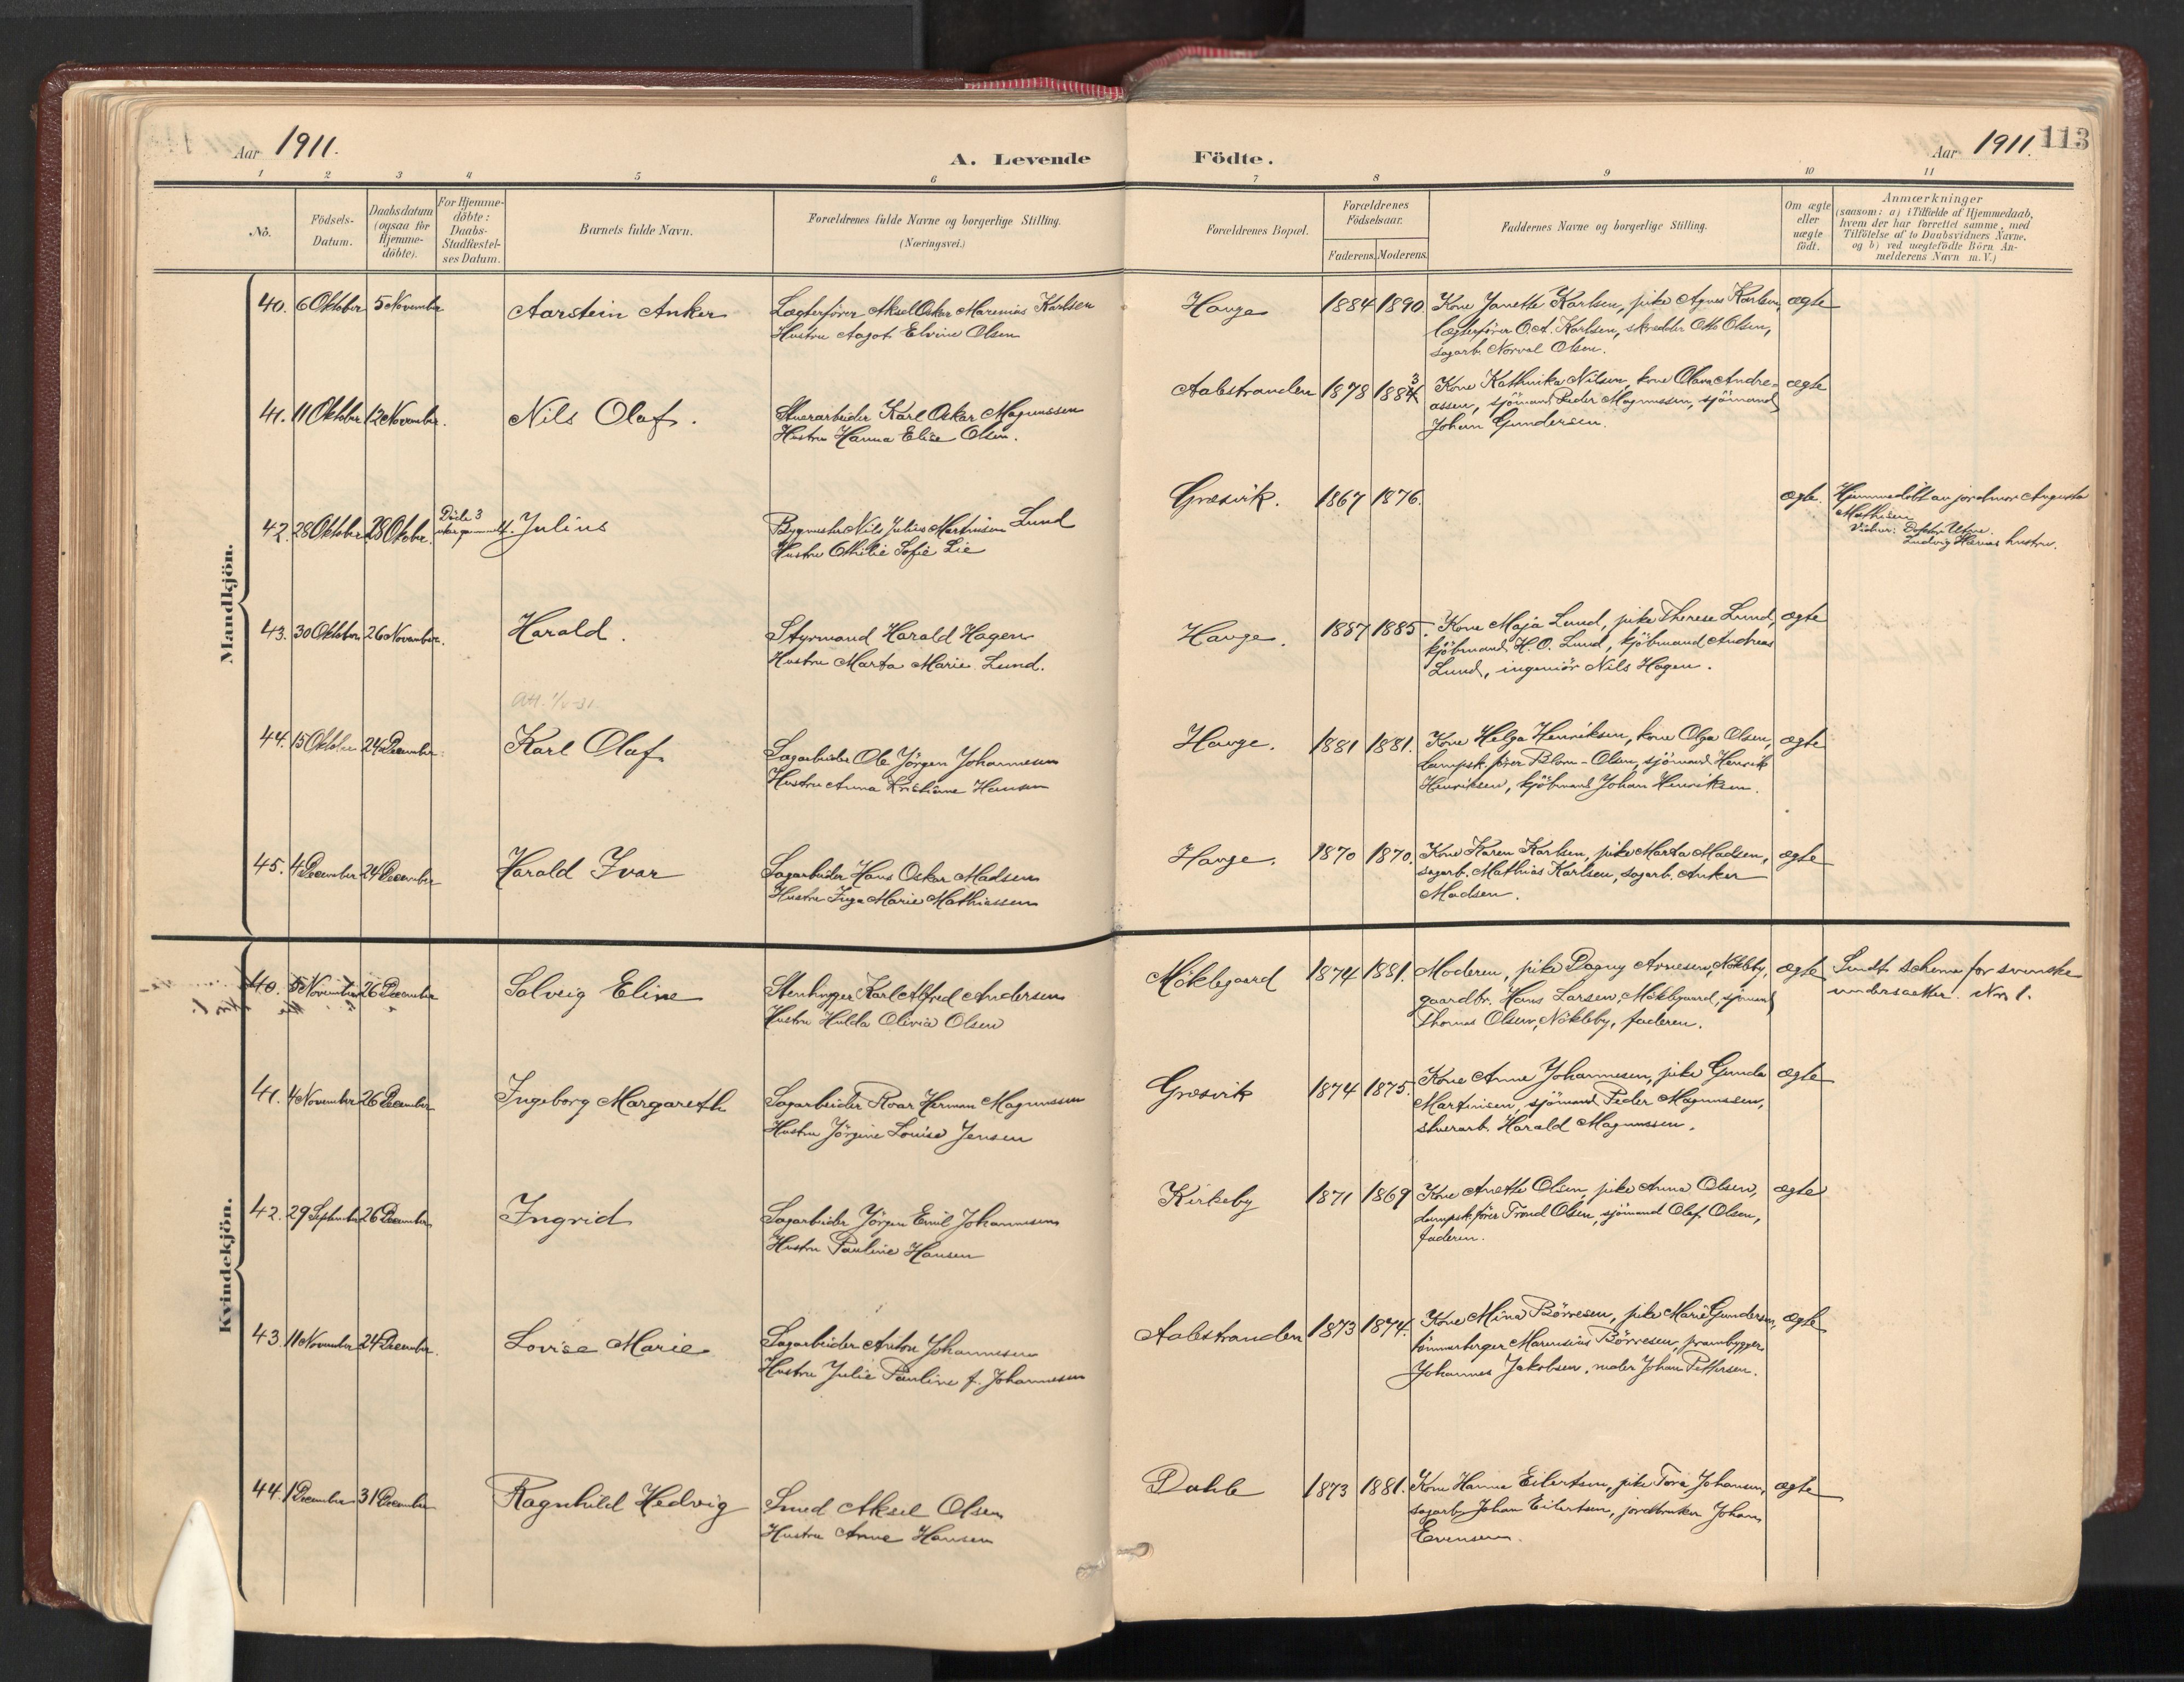 Aar 1911.
A. Levende
Födte.
Aar 1911. 113
1 2 3 4 5 6
7 8 9 10 11
No.
Födsels-
Datum.
Daabsdatum
(ogsaa for
Hjemme-
döbte).
For Hjemme-
döbte:
Daabs-
Stadfæstel-
ses Datum.
Barnets fulde Navn.
Forældrenes fulde Navne og borgerlige Stilling.
(Næringsvei.)
Forældrenes Bopæl.
Forældrenes
Födselsaar.
Faderens. Moderens.
Faddernes Navne og borgerlige Stilling.
Om ægte
eller
uægte
födt.
Anmærkninger
(saasom: a) i Tilfælde af Hjemmedaab,
hvem der har forrettet samme, med
Tilföielse af to Daabsvidners Navne,
og b) ved uægtefödte Börn An-
melderens Navn m. V.)
Mandkjön.
40. 6 Oktober 5 November Aarstein Anker
Lægterförer Aksel Oskar Marenius Karlsen
Hustru Aagot Elvine Olsen
Hauge 1884 1890
Kone Janette Karlsen, pike Agnes Karlsen,
lægterförer O.A. Karlsen, skrædder Otto Olsen,
sagarb. Norval Olsen.
ægte
41. 11 Oktober 12 November. Nils Olaf.
Stuerarbeider Karl Oskar Magnussen
Hustru Hanna Elise Olsen.
Aalestranden 1878 1884 3
Kone Kathinka Nilsen, kone Olava Andre-
assen, sjömand Peder Magnussen, sjömand
Johan Gundersen.
ægte
42. 28 Oktober 28 Oktober. Döde 3 Julius
Bygmester Nils Julius Martinsen Lund
Hustru Othilie Sofie Lie
Græsvik. 1867 1876.
ægte.
Hjemmedöbt av jordmor Augusta
Mathisen
Vidner: Doktor
Ludvig hustru.
43. 30 Oktober 26 November. Harald.
Styrmand Harald Hagen
Hustru Marta Marie Lund.
Hauge. 1887 1885.
Kone Maja Lund, pike Therese Lund,
kjöbmand H.O. Lund, kjöbmand Andreas
Lund, ingeniör Nils Hagen.
ægte
44. 15 Oktober 24 December. Karl Olaf.
Sagarbeider Ole Jörgen Johannesen
Hustru Anna Kristiane Hansen
Hauge. 1881 1881.
Kone Helga Henriksen, kone Olga Olsen,
dampsk.förer Blom-Olsen, sjömand Henrik
Henriksen, kjöbmand Johan Henriksen.
ægte
45. 4 December 24 December Harald Ivar
Sagarbeider Hans Oskar Madsen
Hustru Inga Marie Mathiassen
Hauge. 1870 1870.
Kone Karen Karlsen, pike Marta Madsen,
sagarb. Mathias Karlsen, sagarb. Anker
Madsen.
ægte
Kvindekjön.
40. 5 November 26 December Solveig Eline
Stenhugger Karl Alfred Andersen
Hustru Hulda Olivia Olsen
Möklegaard 1874 1881.
Moderen, pike Dagny Arnesen, Nökleby,
gaardbr. Hans Larsen, Möklegaard, sjömand
Thomas Olsen, Nökleby, faderen.
ægte
Sendt schema for svenske
undersaatter. No 1.
41. 4 November 26 December Ingeborg Margareth
Sagarbeider Roar Herman Magnussen
Hustru Jörgine Louise Jensen
Græsvik 1874 1875.
Kone Anne Johannesen, pike Gunda
Martinsen, sjömand Peder Magnussen,
stuerarb. Harald Magnussen.
ægte
42. 29 September 26 December Ingrid
Sagarbeider Jörgen Emil Johannesen
Hustru Pauline Hansen
Kirkeby 1871 1869
Kone Anette Olsen, pike Anna Olsen,
dampsk.förer Trond Olsen, sjömand Olaf Olsen,
faderen.
ægte
43. 11 November 24 December. Lovise Marie
Sagarbeider Anton Johannesen
Hustru Julie Pauline f. Johannesen
Aalestranden 1873 1874.
Kone Mina Börresen, pike Marie Gundersen,
Marensius Börresen, prambygger
Johannes Jakobsen, maler Johan Pettersen.
ægte
44. 1 December 31 December Ragnhild Hedvig
Smed Aksel Olsen
Hustru Anne Hansen
Dahle 1873 1881.
Kone Hanna Eilertsen, pike Tora Johansen,
sagarb. Johan Eilertsen, jordbruker Johan
Evensen.
ægte